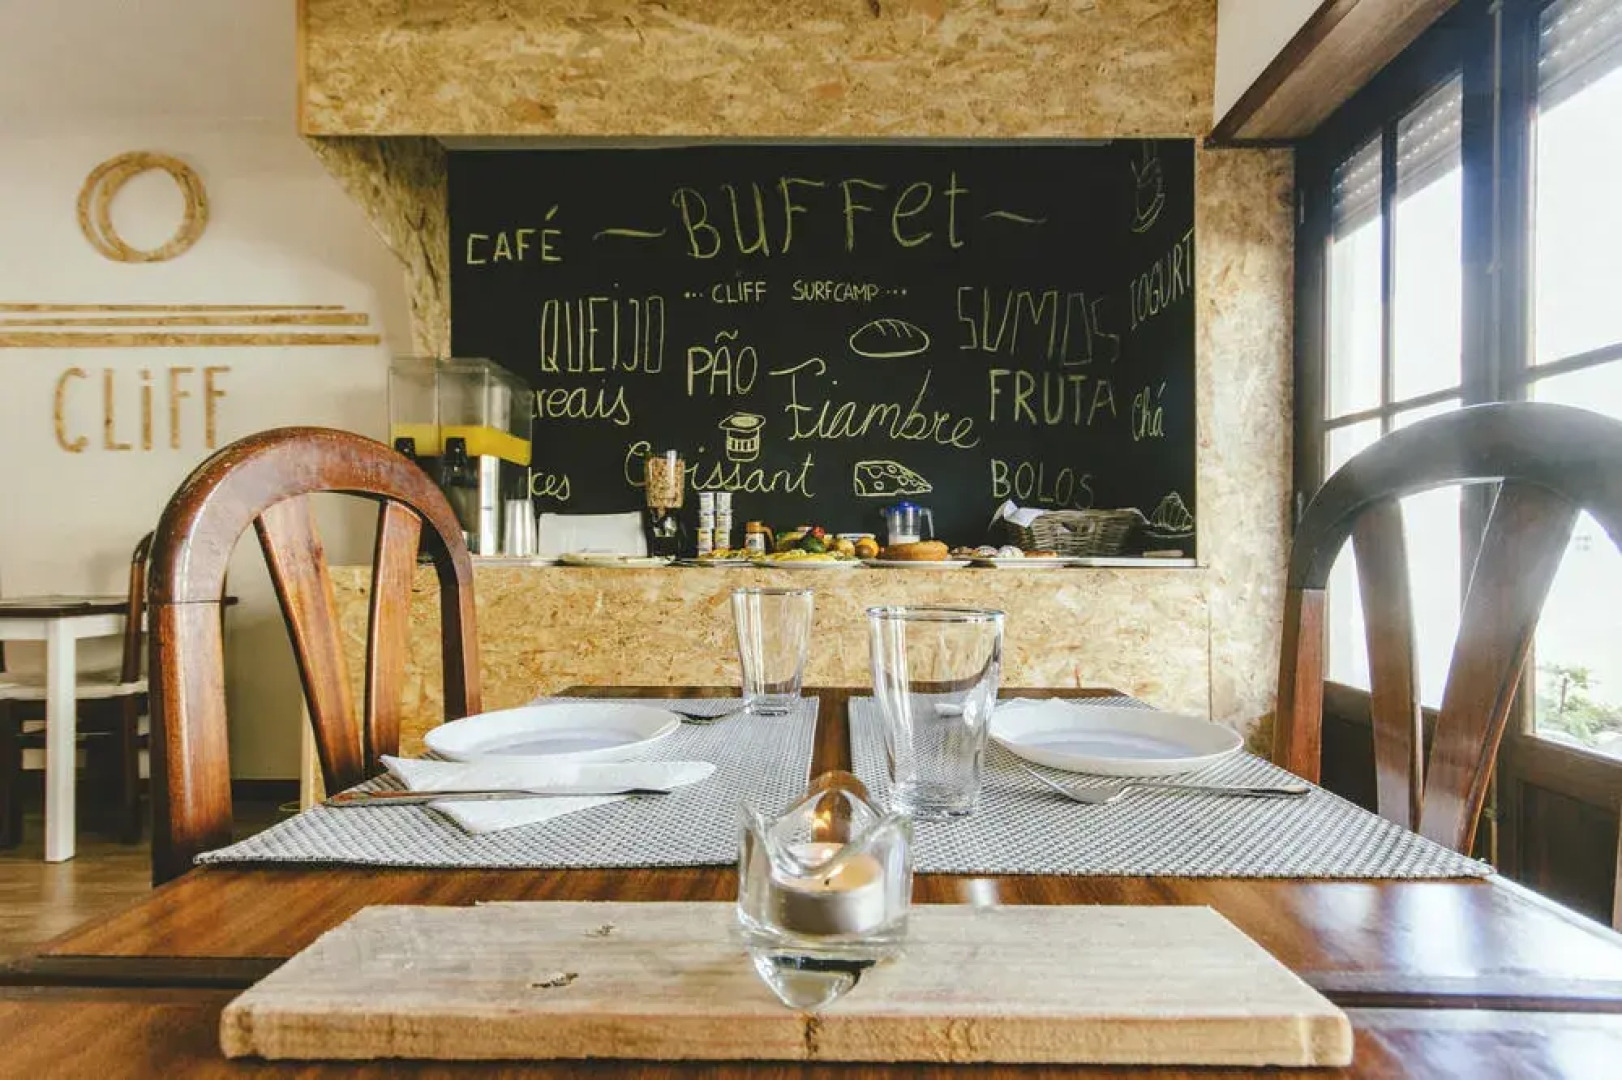 CLiFF
BUFFet
CAFÉ
CLIFF SURFCAMP
QUEIJO
PÃO
SUMOS
IOGURT
reais
Fiambre
FRUTA
Chá
Croissant
BOLOS